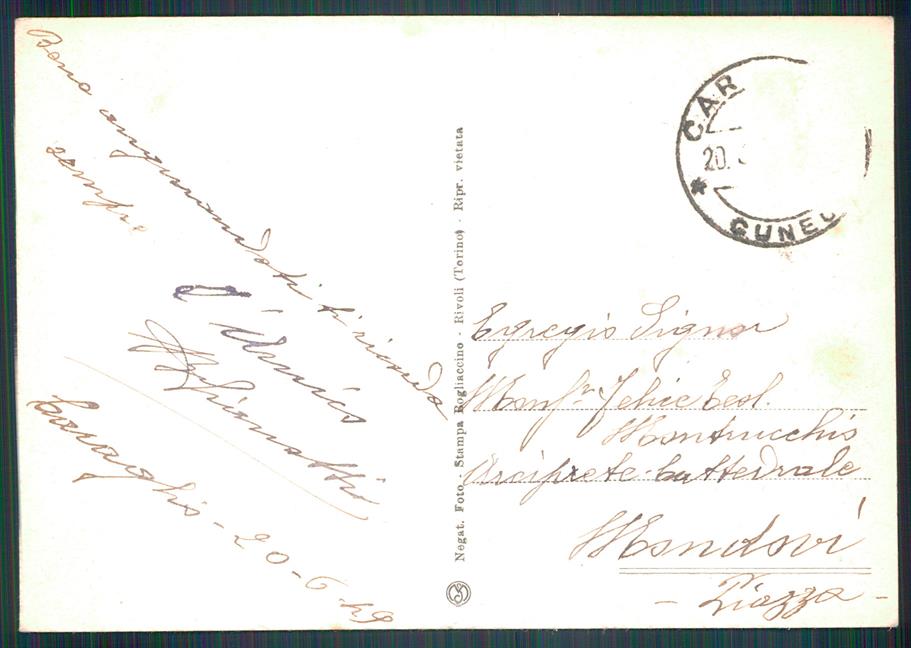 Bene augurandoti ti ricordo
sempre
l'Amico
Caraglio - 20-6-49
Negat. Foto. - Stampa Rogliaccino - Rivoli (Torino) - Ripr. vietata
CAR
20.
* CUNEO
Egregio Signor
Monsr Felice Teol.
Montrucchio
Arciprete Cattedrale
Mondovì
- Piazza -